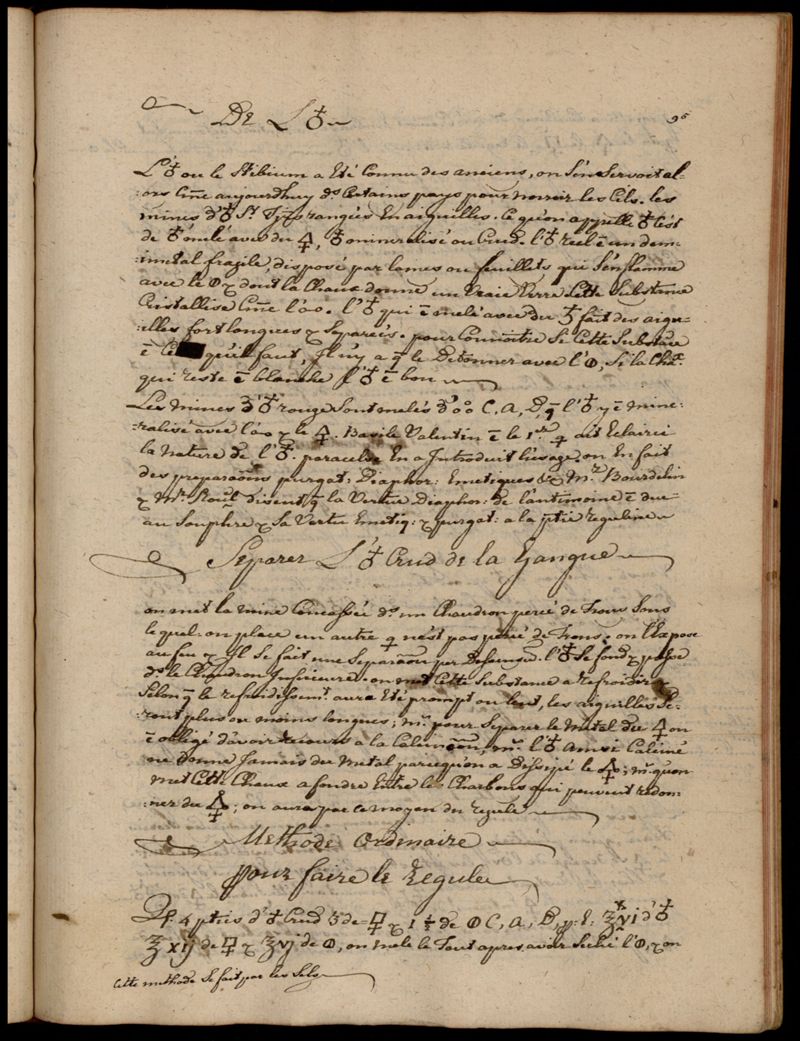 De L'♁
95
L'♁ ou le Stibium a Eté Connu des anciens, on S'en Servoit al-
:ors Cm̄e aujourdhuy ds Certains pays pour noircir les Cils. les
mines d'♁ St Tjrs rangées En aiguilles. Ce qu'on appelle ♁ C'est
de ♁ mêlé avec du 🜍, ♁ mineralisé ou Crud. l'♁ réel ē un demi
:metal fragile disposé par lames ou feuillets qui S'enflamme
avec le 🜕 & dont la Chaux donne un vraie Verre Cette Substance
Cristallise Cm̄e l'. l'♁ qui ē mêlé avec du 🜍 fait des aigu-
:illes fort longues & Separées. pour Connoître Si Cette Substance
ē Ce qu'il faut, Il n'y a q̄ le Detonner avec l'🜕, Si la Chx
qui reste ē blanche l'♁ ē bon
Les mines D'♁ rouge Sont melés C, A, D, q̄ l'♁ y ē mine-
:ralisé avec & le 🜍. Basile Valentin ē le 1er q ait Eclairci
la Nature de l'♁. paracelse En a Introduit l'usage. on En fait
des preparaōns purgat: Diaphor: Emetiques &c Mr Bourdelin
& Mr Roüel disent q̄ la Vertu Diaphor: de l'antimoine ē due
au Souphre & Sa Vertu Emetiq: & purgat: a la ptie reguline
Separer L'♁ Crud de la Gangue
on met la mine Concassée ds un Chaudron percé de Trous Sous
lequel on place un autre q n'est pas percé de Trous. on l'Expose
au feu & Il Se fait une Separaōn per Descensum. l'♁ Se fond & passe
ds le Chaudron Inferieur. on met Cette Substance a refroidir &
Selon q̄ le refroidissemt aura Eté prompt ou lent, les aiguilles Se-
:ront plus ou moins longues; ms pour Separer le metal du 🜍 on
ē obligé d'avoir recours a la Calcinaōn, ms l'♁ Ainsi Calciné
ne donne Jamais du Metal parcequ'on a Dissipé le 🜍; ms qu'on
met Cette Chaux a fondre Entre les Charbons qui peuvent redon-
:ner du 🜍; on aura par ce moyen du regule
Methode Ordinaire
pour faire le Regule
♃: 4 pties d'♁ Crud 3 de & 1 ½ de 🜕 C, A, D, p: E: ℥ xvi d'♁
℥ xij de & ℥vj de 🜕, on mele le Tout apres avoir Seché l'🜕, & on
Cette methode Se fait par les Sels